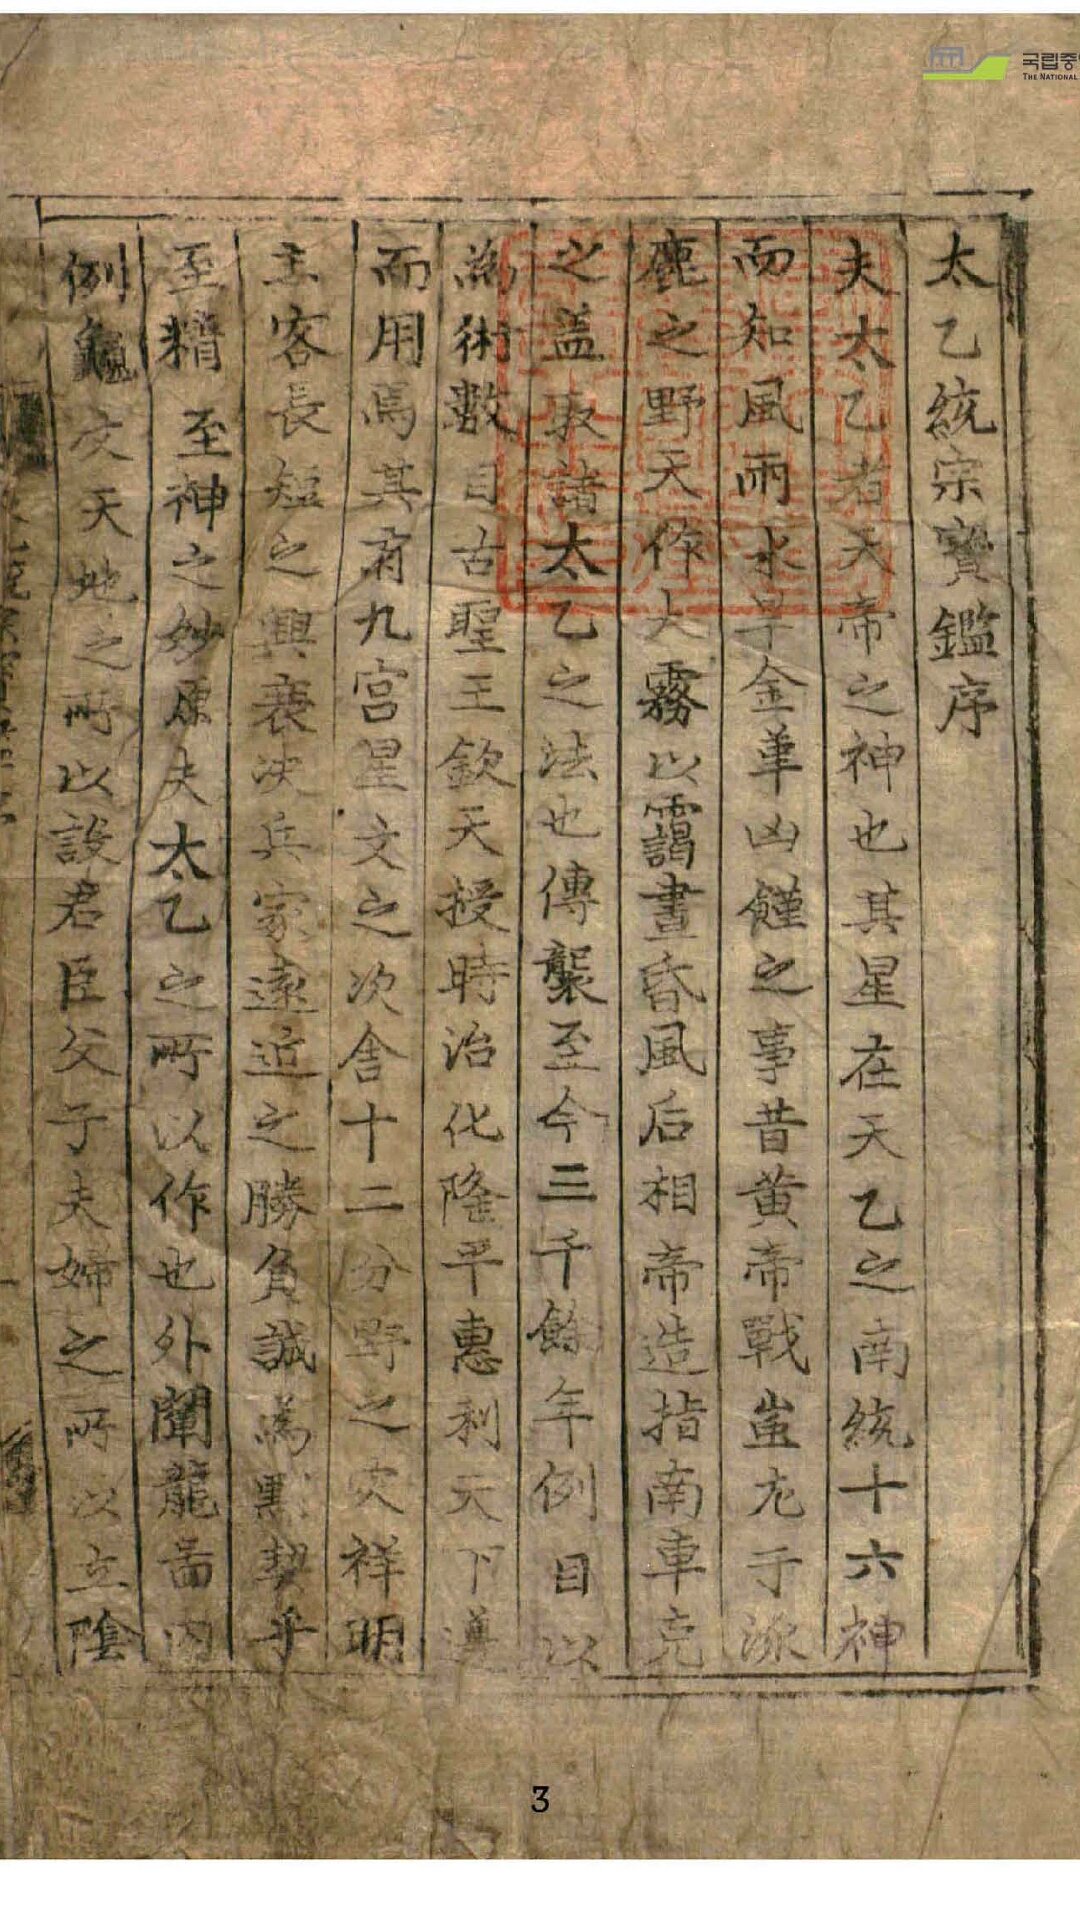 太乙統宗寶鑑序
夫太乙者天帝之神也其星在天乙之南統十六神
而知風雨水旱金革凶饉之事昔黃帝戰蚩尤于涿
鹿之野天作大霧以靄晝昏風后相帝造指南車克
之盖取諸太乙之法也傳襲至今三千餘年例目以
為術數自古聖王欽天授時治化隆平惠利天下遵
而用焉其有九宮星文之次舍十二分野之灾祥明
主客長短之興衰决兵家遠近之勝負誠為默契乎
至精至神之妙原夫太乙之所以作也外闡龍啚內
例龜文天地之所以設君臣父子夫婦之所以立陰
국립중
THE NATIONAL
3